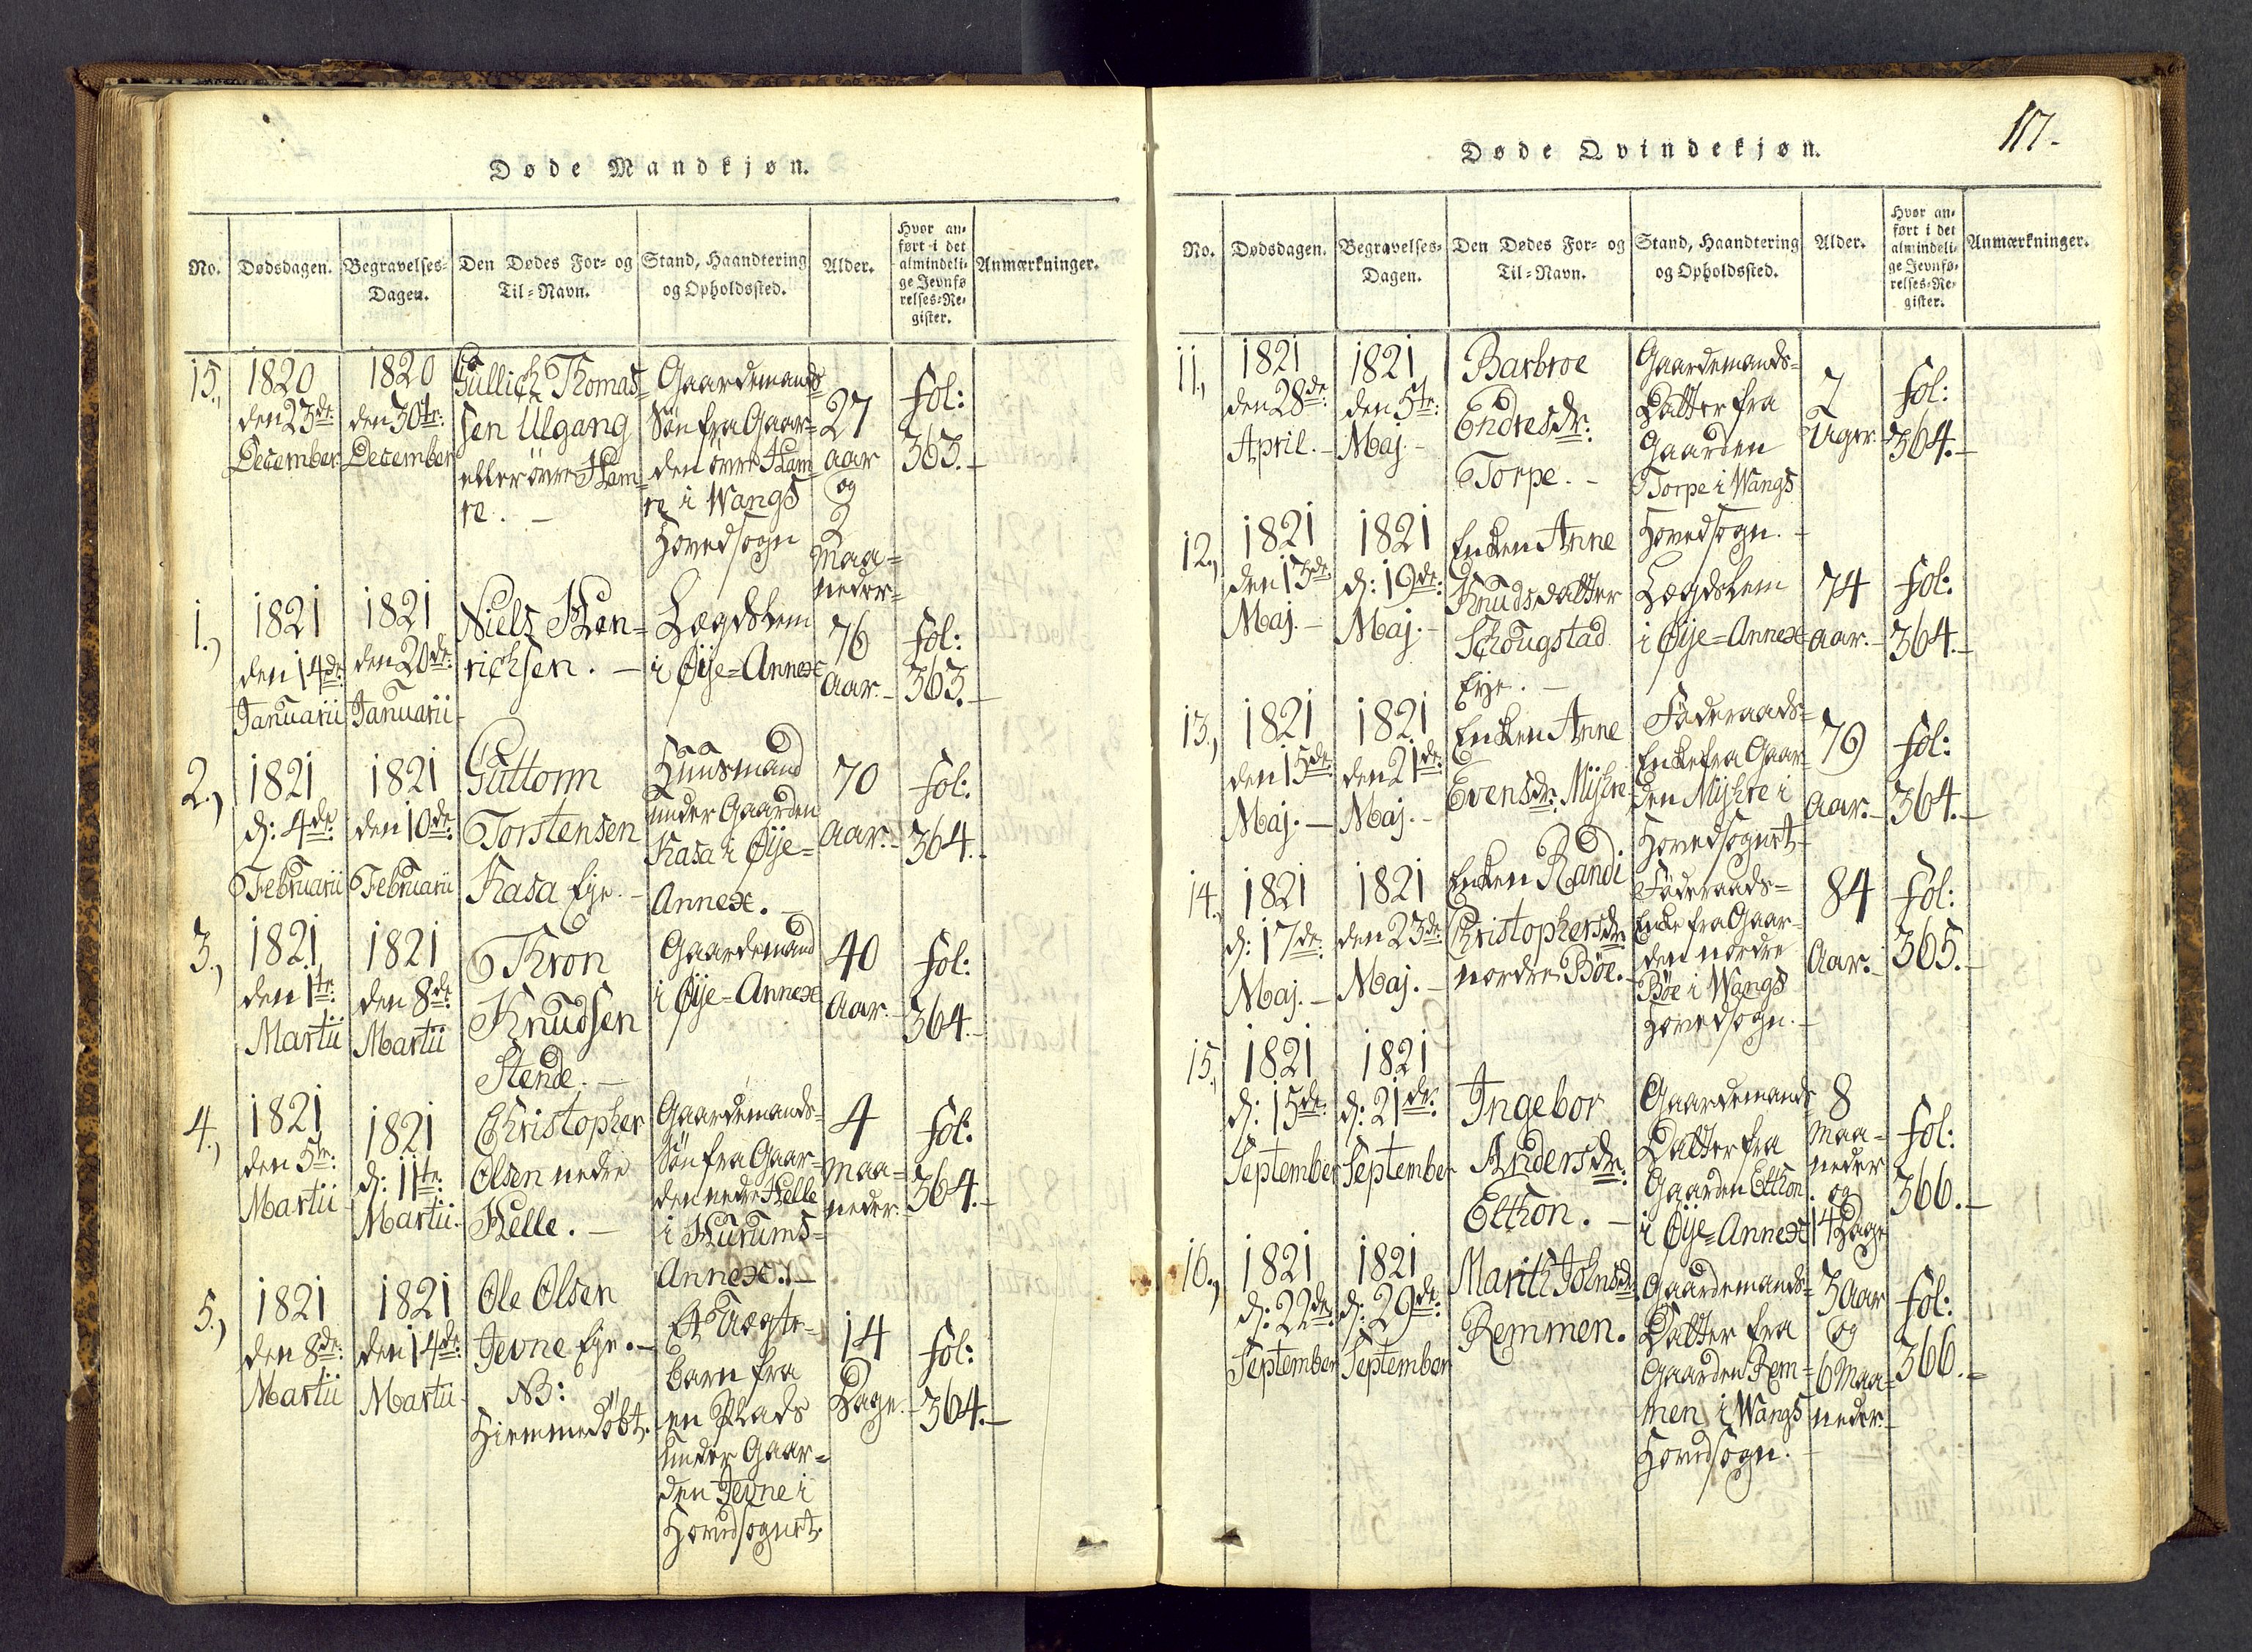 Døde Mandkjøn.
No.
Dødsdagen.
Begravelses-
Dagen.
Den Dødes For- og
Til-Navn.
Stand, Haandtering
og Opholdssted.
Alder.
Hvor an-
ført i det
almindeli-
ge Jevnfø
relses-Re-
gister.
Anmærkninger.
15.,
1820
den 23de
December
1820
den 30te:
December
Gullich Thomas-
sen Ulgang
eller övre Ham-
re. –
Gaardemands
Sön fra Gaar-
den övre Ham-
re i Wangs
Hovedsogn
27
aar
og
2
Maa-
neder-
fol:
363.–
1.,
1821
den 14de
Januarii
1821
den 20de:
Januarii
Niels Hen-
richsen. –
Lægdslem
i Øije-Annex
76
aar.–
fol:
363.–
2.,
1821
d: 4de
Februarii
1821
den 10de
Februarii
Guttorm
Torstensen
Kasa Eje. –
Huusmand
under Gaarden
Kasa i Øije-
Annex. –
70
aar.–
fol:
364.–
3.,
1821
den 1te
Martii
1821
den 8de
Martii
Thron
Knudsen
Stende. –
Gaardemand
i Øije-Annex
40
aar.–
fol:
364.–
4.,
1821
den 5te:
Martii
1821
d: 11te
Martii.
Christopher
Olsen nedre
Helle. –
Gaardemands-
Sön fra Gaar-
den nedre Helle
i Hurums-
Annex. –
4
Maa-
neder.
fol:
364.–
5.,
1821
den 8de:
Martii
1821
den 14de
Martii
Ole Olsen
Jevne Eje. –
NB:
Hiemmedöbt.
Et Uægte-
barn fra
en Plads
under Gaar-
den Jevne i
Hovedsognet.
14
Dage.–
fol:
364.–
117.
Døde Qvindekjøn.
No.
Dødsdagen.
Begravelses-
Dagen.
Den Dødes For- og
Til-Navn.
Stand, Haandtering
og Opholdssted.
Alder.
Hvor an-
ført i det
almindeli-
ge Jevnfø-
relses-Re-
gister.
Anmærkninger.
11.,
1821
den 28de
April. –
1821
den 5te:
Maj –
Barbroe
Endresdr:
Torpe. –
Gaardemands-
Datter fra
Gaarden
Torpe i Wangs
Hovedsogn. –
7
Uger.
fol:
364.–
12.,
1821
den 13de
Maj. –
1821
d: 19de:
Maj. –
Enken Anne
Knudsdatter
Schougstad
Eije. –
Lægdslem
i Øije-Annex
74
aar.–
fol:
364.–
13.,
1821
den 15de
Maj. –
1821
den 21de
Maj. –
Enken Anne
Evensdr: Mijhre
Föderaads-
Enke fra Gaar-
den Mijhre i
Hovedsognet
79
aar.–
fol:
364.–
14.,
1821
d: 17de
Maj. –
1821
den 23de
Maj. –
Enken Randi
Christophersdr
nordre Böe. –
Föderaads-
Enke fra Gaar-
den nordre
Böe i Wangs
Hovedsogn. –
84
Aar.–
fol:
365.–
15.,
1821
d: 15de
September
1821
d: 21de
September
Ingebor
Andersdr:
Elthon. –
Gaardemands
Datter fra
Gaarden Elthon
i Øije-Annex
8
Maa-
neder
og
14 Dage
fol:
366.–
16.,
1821
d: 22de
September
1821
d: 29de:
September
Marith Johnsdr
Remmen.
Gaardemands-
Datter fra
Gaarden Rem-
men i Wangs
Hovedsogn. –
3 Aar
og
6 Maa-
neder.–
fol:
366.–